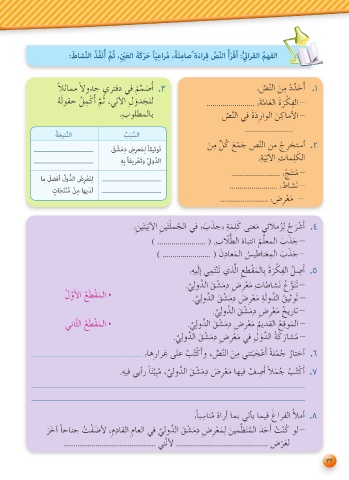 الفهم القرائيّ: أقرأُ النَّصَّ قراءةً صامتةً، مُراعِياً حَرَكَةَ العَيْنِ، ثُمَّ أُنَفِّذُ النَّشاطَ:
١. أُحَدِّدُ مِنَ النَّصِّ:
– الفِكْرَةَ العامَّةَ: ..........................
– الأماكِنَ الوارِدَةَ في النَّصِّ
..........................
٢. أستخرجُ من النَّصِ جَمْعَ كُلٍّ مِنَ
الكلماتِ الآتيةِ:
– مُنتَجٌ: ..........................
– نَشاط: ..........................
– مَعْرِض: ..........................
٣. أصمّمُ في دفتري جدولاً مماثلاً
للجَدْوَلِ الآتي، ثُمَّ أُكْمِلُ حقولَهُ
بالمطلوبِ.
السَّبَبُ النَّتيجَةُ
توثيقاً لِمَعرِضِ دِمَشْقَ
الدّوليِّ وتَعْريفاً بِهِ
لِتَعْرِضَ الدُّولُ أفضلَ ما
لدَيها مِنْ مُنْتَجاتٍ
٤. أَشْرَحُ لِزُملائي مَعنى كَلِمَةِ «جذَبَ» في الجُملَتَينِ الآتيتَينِ:
– جَذَبَ المعلِّمُ انتباهَ الطُّلّابِ. ( .......................... )
– جَذَبَ المغناطيسُ المَعادِنَ ( .......................... )
٥. أَصِلُ الفِكْرَةَ بالمَقْطَعِ الَّذي تَنْتَمي إليهِ:
– تنوُّعُ نَشاطاتِ مَعْرِضِ دِمَشْقَ الدُّوليِّ.
– توثيقُ الدَّولةِ مَعْرِضَ دِمَشْقَ الدُّوليَّ.
– تاريخُ مَعْرِضِ دِمَشْقَ الدُّوليِّ.
– الموقِعُ القديمُ لِمَعْرِضِ دِمَشْقَ الدُّوليِّ.
– مُشارَكَةُ الدُّوَلِ في مَعْرِضِ دِمَشْقَ الدُّوليِّ.
• المَقْطَعُ الأوَّلُ
• المَقْطَعُ الثّاني
٦. أختارُ جُمْلَةً أعْجَبَتني مِنَ النَّصِّ، وأكْتُبُ على غِرارِها.
٧. أكْتُبُ جُمَلاً أصِفُ فيها مَعْرِضَ دِمَشْقَ الدُّوليَّ، مُبَيِّناً رأيي فيهِ.
٨. أملأُ الفراغَ فيما يأتي بما أراهُ مُناسِباً.
– لو كُنْتُ أحَدَ المُنَظِّمينَ لِمَعْرِضِ دِمَشْقَ الدُّوليِّ في العامِ القادِمِ، لأضَفْتُ جناحاً آخَرَ
لعَرْضِ .......................... لأنَّني ..........................